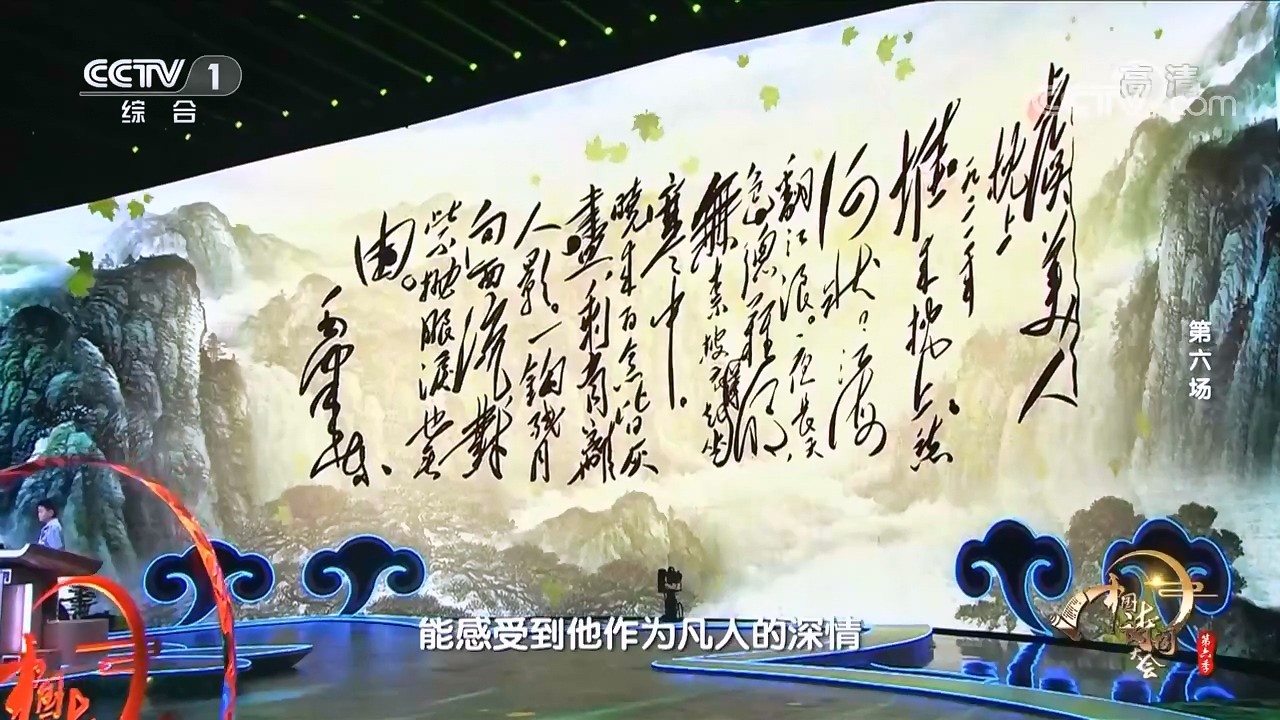 CCTV 1
综合
高清
CNTV.com
虞美人
枕上
一九二一年
堆来枕上愁
何状?江海
翻江浪。夜長天
色總難明
無奈披衣起坐
薄寒中。
曉来百念皆灰
盡,剩有離
人影。一鈎残月
向西流,對
此不抛眼淚也無
由。
毛澤東
第六场
能感受到他作为凡人的深情
中国诗词大会
第六季